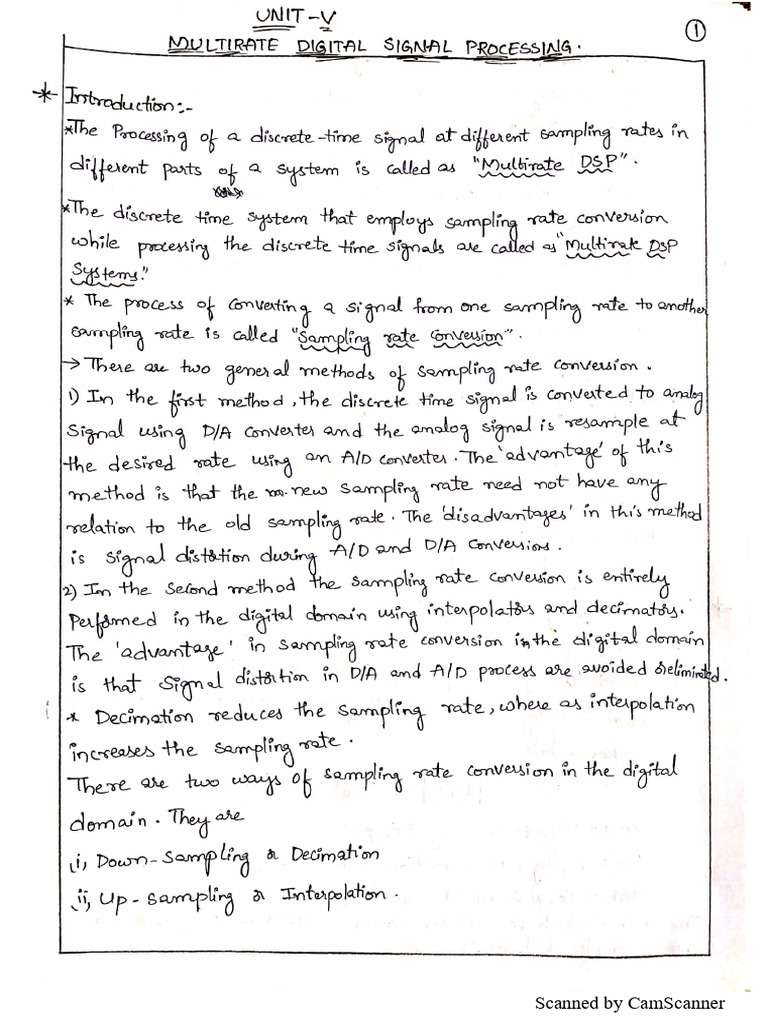 UNIT-V
①
MULTIRATE DIGITAL SIGNAL PROCESSING.
* Introduction:-
*The Processing of a discrete-time signal at different sampling rates in
different parts of a system is called as "Multirate DSP".
*The discrete time system that employs sampling rate conversion
while processing the discrete time signals are called as "Multirate DSP
Systems."
* The process of converting a signal from one sampling rate to another
sampling rate is called "Sampling rate Conversion".
→ There are two general methods of sampling rate conversion.
1) In the first method, the discrete time signal is converted to analog
signal using D/A Converter and the analog signal is resample at
the desired rate using an A/D converter. The 'advantage' of this
method is that the new sampling rate need not have any
relation to the old sampling rate. The 'disadvantages' in this method
is signal distortion during A/D and D/A conversions.
2) In the Second method the sampling rate conversion is entirely
Performed in the digital domain using interpolators and decimators.
The 'advantage' in sampling rate conversion in the digital domain
is that signal distortion in D/A and A/D process are avoided or eliminated.
* Decimation reduces the sampling rate, where as interpolation
increases the sampling rate.
There are two ways of sampling rate conversion in the digital
domain. They are
i, Down-Sampling or Decimation
ii, Up-sampling or Interpolation.
Scanned by CamScanner